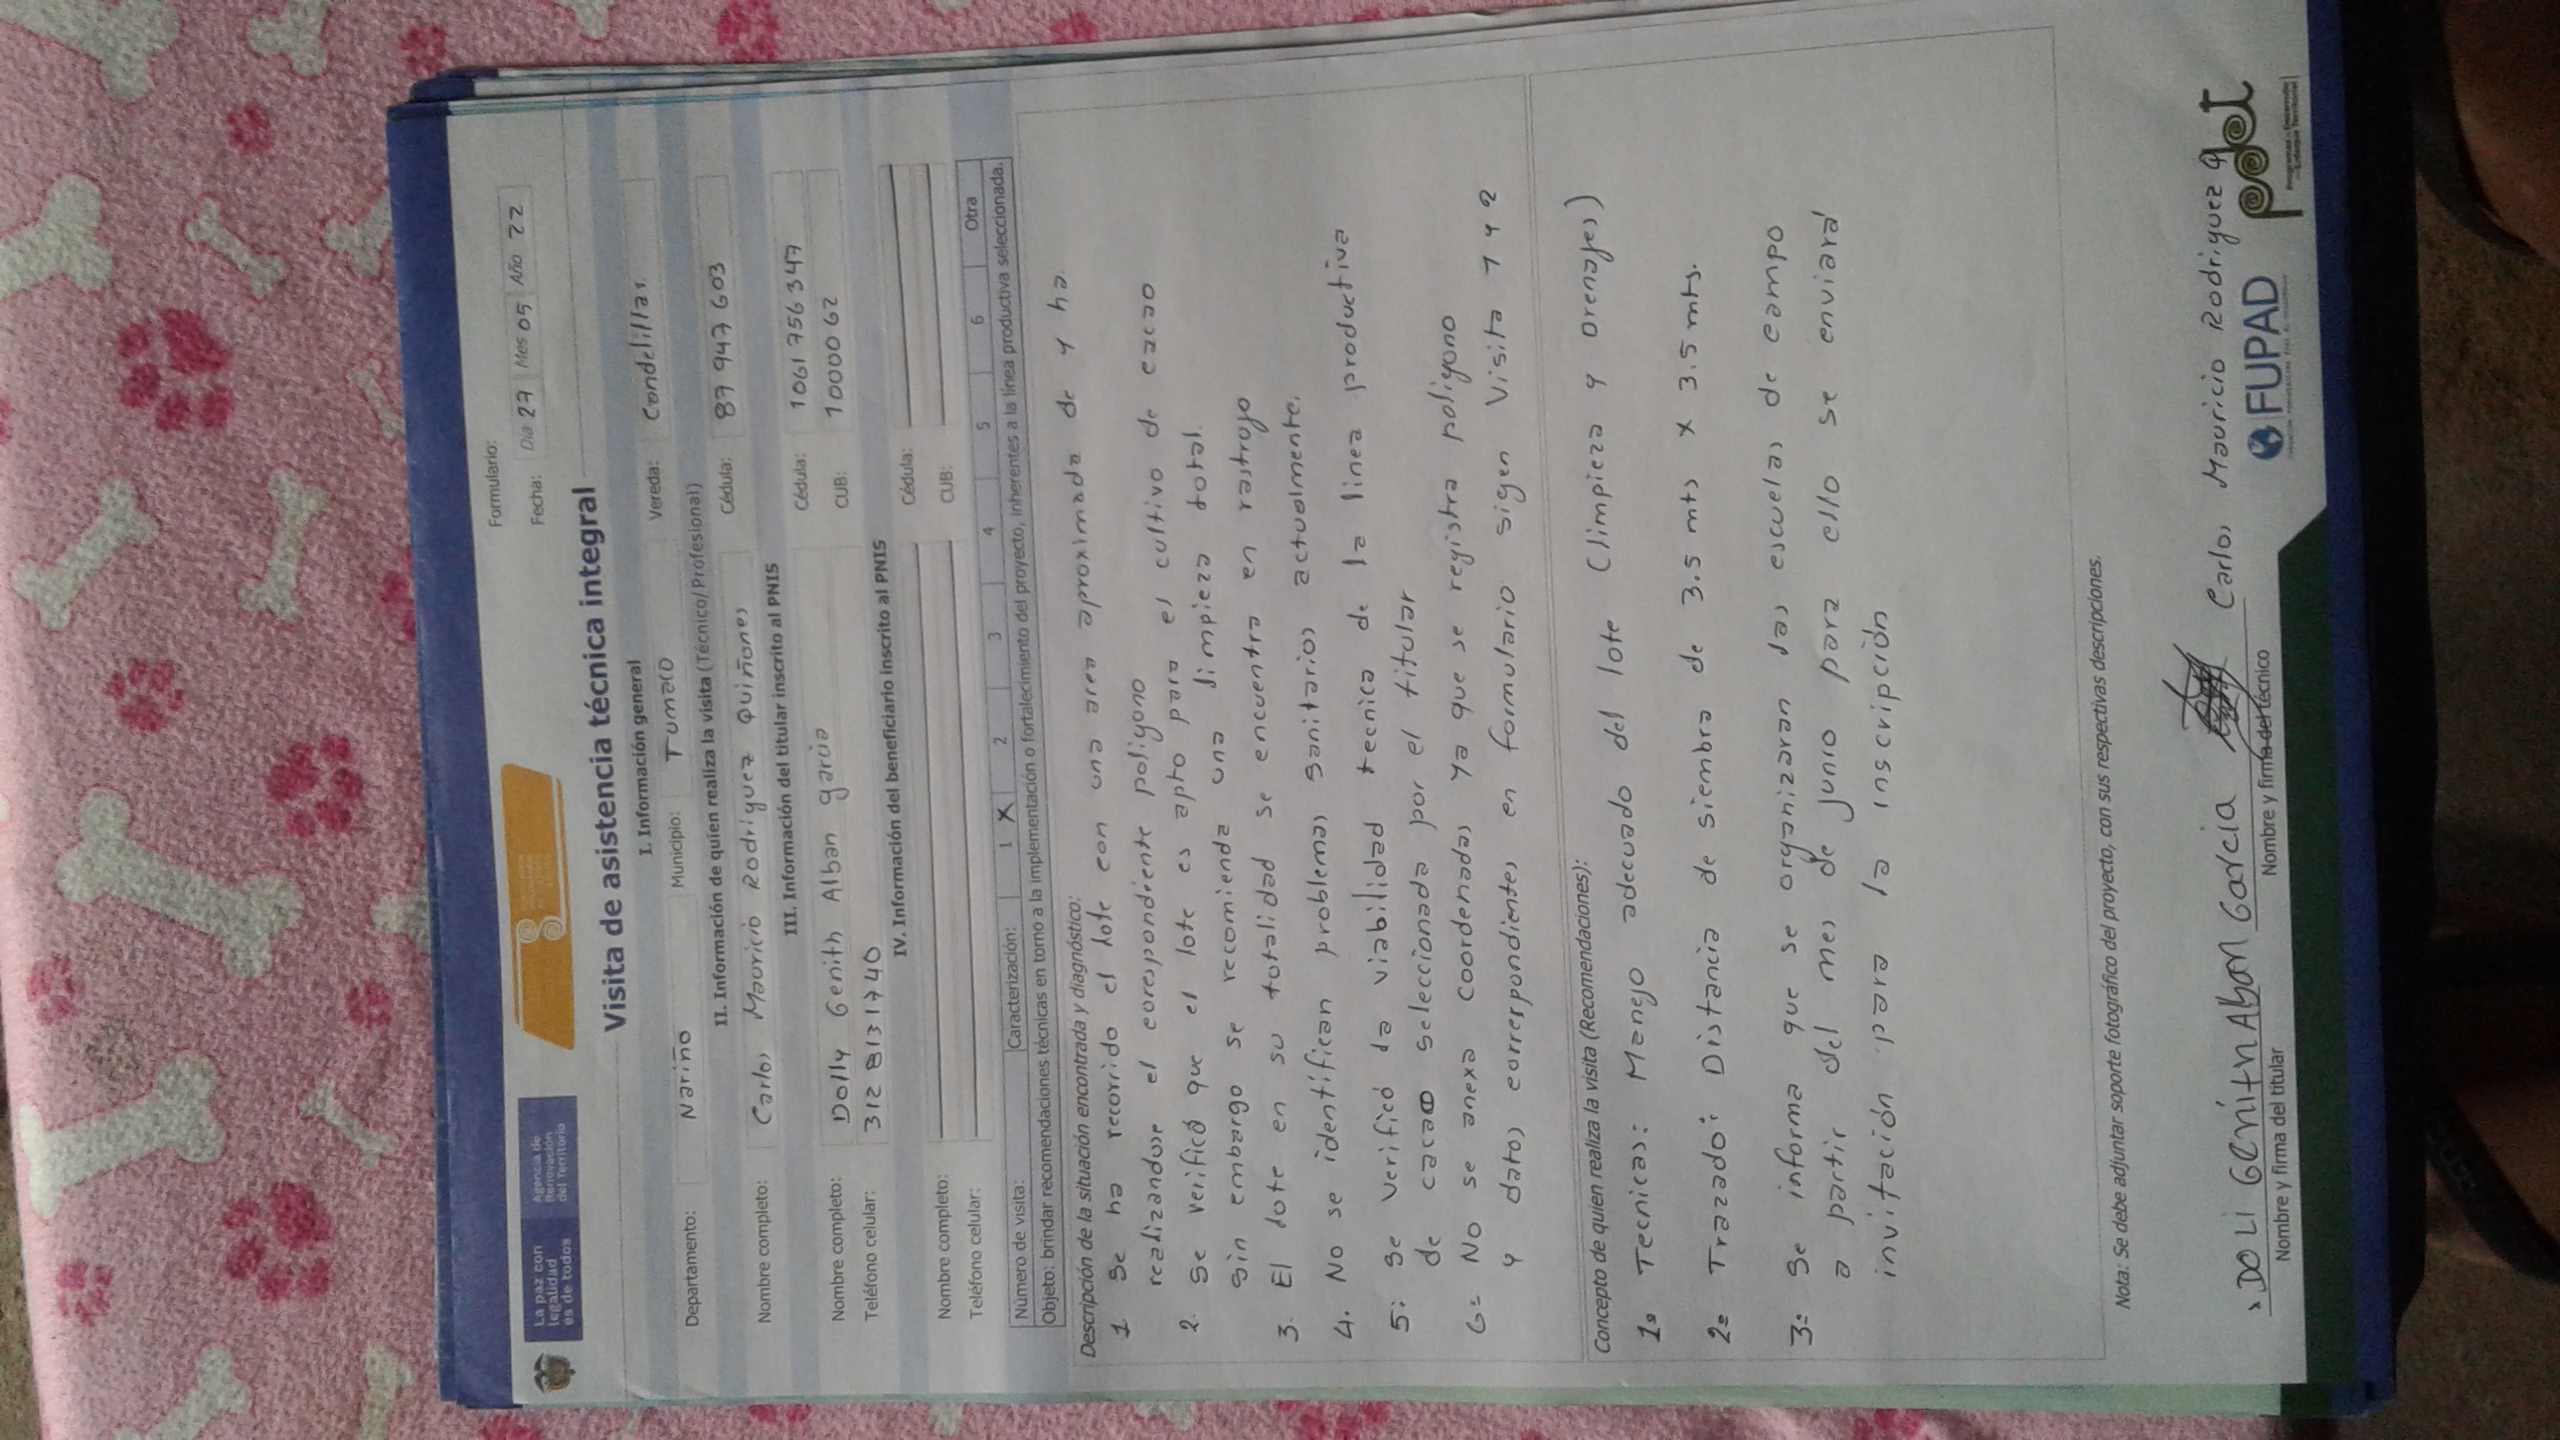 La paz con
legalidad
es de todos
Agencia de
Renovación
del Territorio
Formulario:
Fecha: Día 27 Mes 05 Año 22
Visita de asistencia técnica integral
I. Información general
Departamento: Nariño Municipio: Tumaco Vereda: Candelillas.
II. Información de quien realiza la visita (Técnico/Profesional)
Nombre completo: Carlos Mauricio Rodriguez Quiñones Cédula: 87 947 603
III. Información del titular inscrito al PNIS
Nombre completo: Dolly Genith Alban garcia Cédula: 1061 756 347
Teléfono celular: 312 8131740 CUB: 1000062
IV. Información del beneficiario inscrito al PNIS
Nombre completo: Cédula:
Teléfono celular: CUB:
Número de visita: Caracterización: 1 X 2 3 4 5 6 Otra
Objeto: brindar recomendaciones técnicas en torno a la implementación o fortalecimiento del proyecto, inherentes a la línea productiva seleccionada.
Descripción de la situación encontrada y diagnóstico:
1 Se ha recorrido el lote con una area aproximada de y ha.
realizandose el corespondiente poligono
2. Se verificó que el lote es apto para el cultivo de cacao
sin embargo se recomienda una limpieza total.
3. El lote en su totalidad se encuentra en rastrojo
4. No se identifican problemas sanitarios actualmente.
5: Se verificó la viabilidad tecnica de la linea productiva
de cacao seleccionada por el titular
6= No se anexa coordenadas ya que se registra poligono
y datos correspondientes en formulario sigen Visita 1 y 2
Concepto de quien realiza la visita (Recomendaciones):
1= Tecnicas: Manejo adecuado del lote (limpieza y Drenajes)
2= Trazado: Distancia de siembra de 3.5 mts x 3.5 mts.
3= Se informa que se organizaran las escuelas de campo
a partir del mes de junio para ello se enviará
invitación para la inscripción
Nota: Se debe adjuntar soporte fotográfico del proyecto, con sus respectivas descripciones.
DOLI GENITH Alban Garcia Carlos Mauricio Rodriguez Q
Nombre y firma del titular Nombre y firma del técnico
FUPAD
pdet
Programas de Desarrollo
con Enfoque Territorial